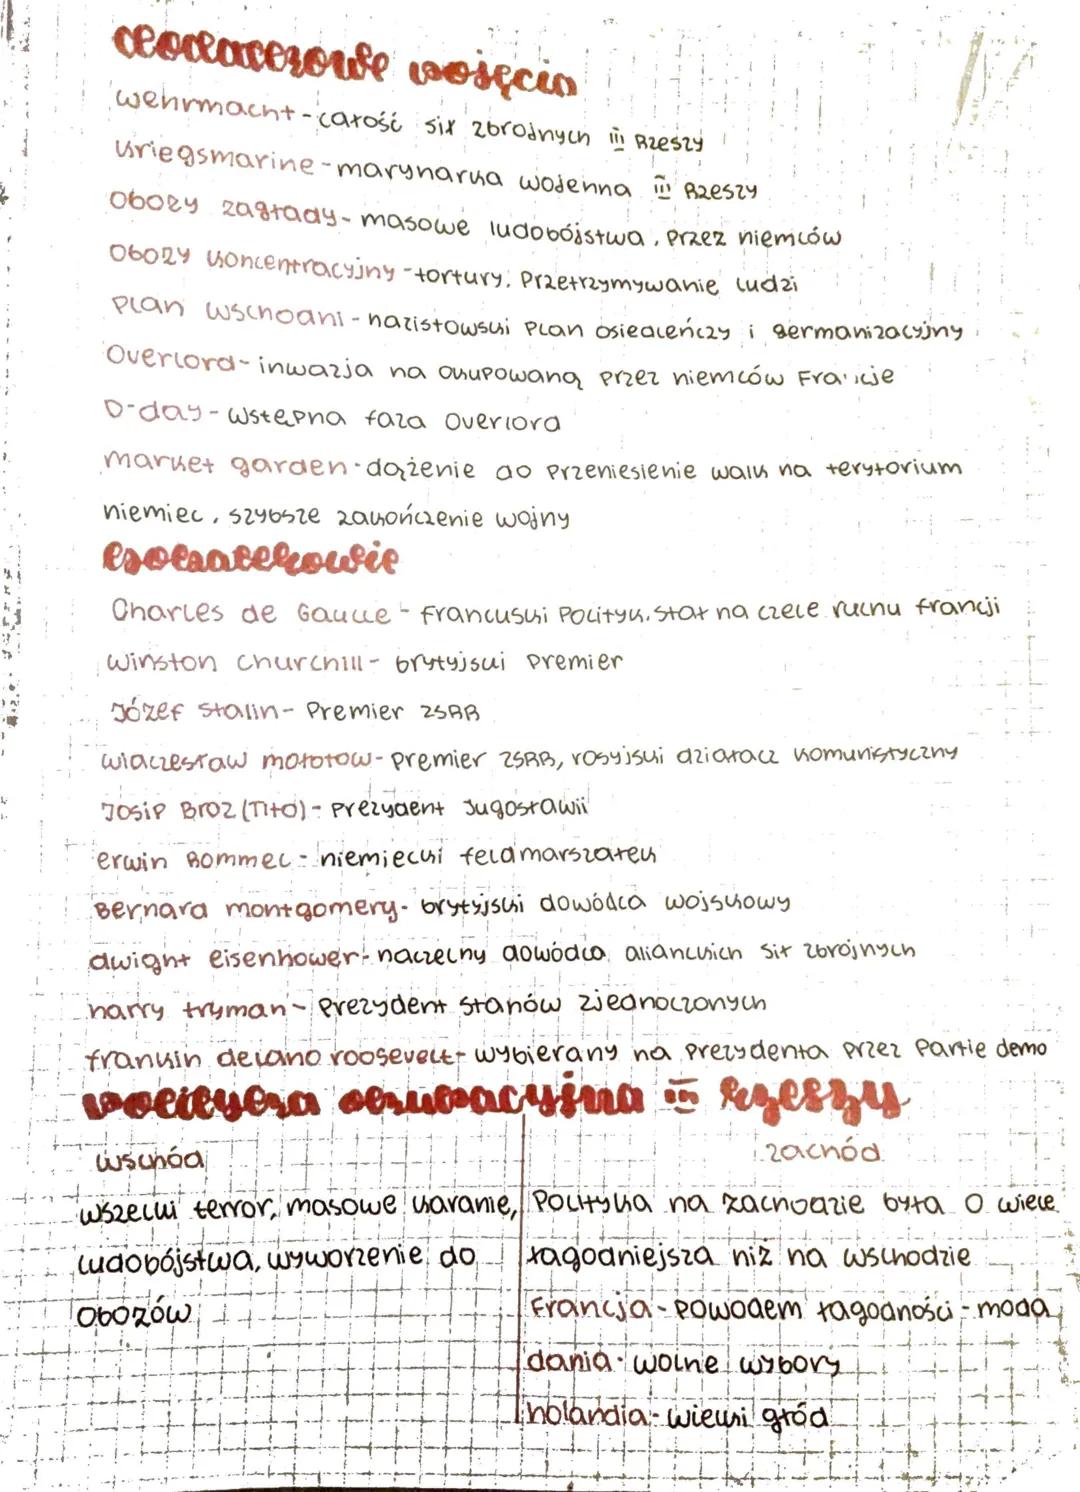 pojęcia
wehrmacht - całość sił zbrojnych III Rzeszy
Kriegsmarine - marynarka wojenna III Rzeszy
Obozy zagłady - masowe ludobójstwa, przez niemców
Obozy koncentracyjny - tortury, przetrzymywanie ludzi
plan wschodni - nazistowski plan osiedleńczy i germanizacyjny
Overlord - inwazja na okupowaną przez niemców Francje
D-day - wstępna faza Overlord
market garden - dążenie do przeniesienie walk na terytorium
niemiec, szybsze zakończenie wojny
Charles de Gaulle - francuski polityk, stał na czele ruchu francji
winston churchill - brytyjski premier
Józef stalin - Premier ZSRR
wiaczesław mołotow - premier ZSRR, rosyjski działacz komunistyczny
Josip Broz (Tito) - prezydent Jugosławii
erwin Rommel - niemiecki feldmarszałek
Bernard montgomery - brytyjski dowódca wojskowy
dwight eisenhower - naczelny dowódca alianckich sił zbrojnych
harry tryman - prezydent stanów zjednoczonych
frankin delano roosevelt - wybierany na prezydenta przez Partie demo
polityka okupacyjna III Rzeszy
wschód
zachód
wszelki terror, masowe karanie,
ludobójstwa, wyworzenie do
obozów
Polityka na zachodzie była o wiele
łagodniejsza niż na wschodzie
Francja - powodem łagodności - moda
dania - wolne wybory
holandia - wielki głód